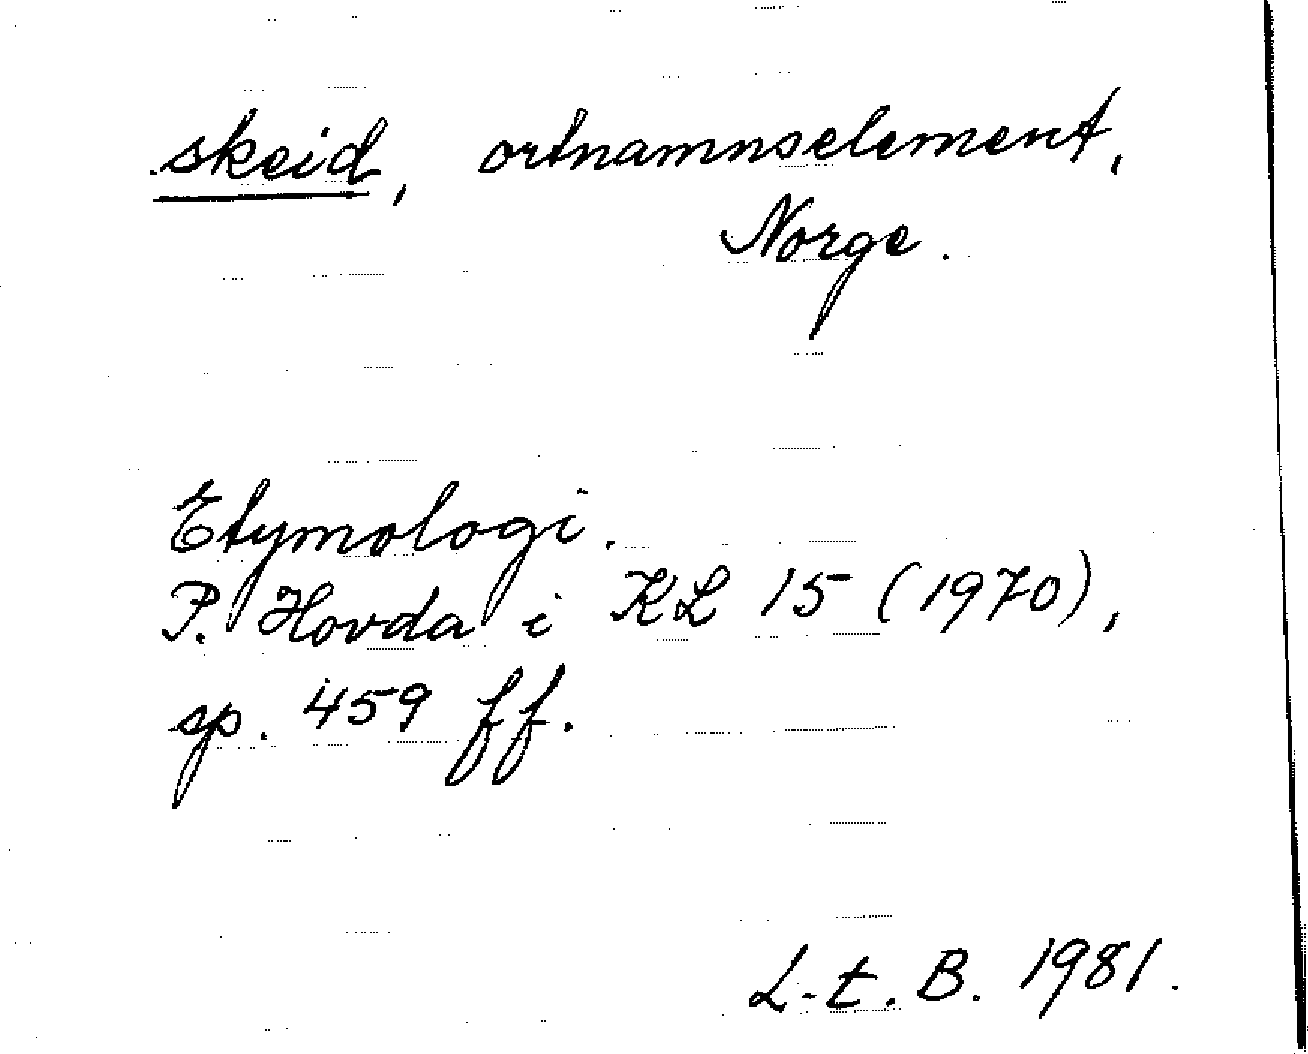 skeid, ortnamnselement,
Norge.
Etymologi.
P. Hovda i KL 15 (1970),
sp. 459 ff.
L-t. B. 1981.